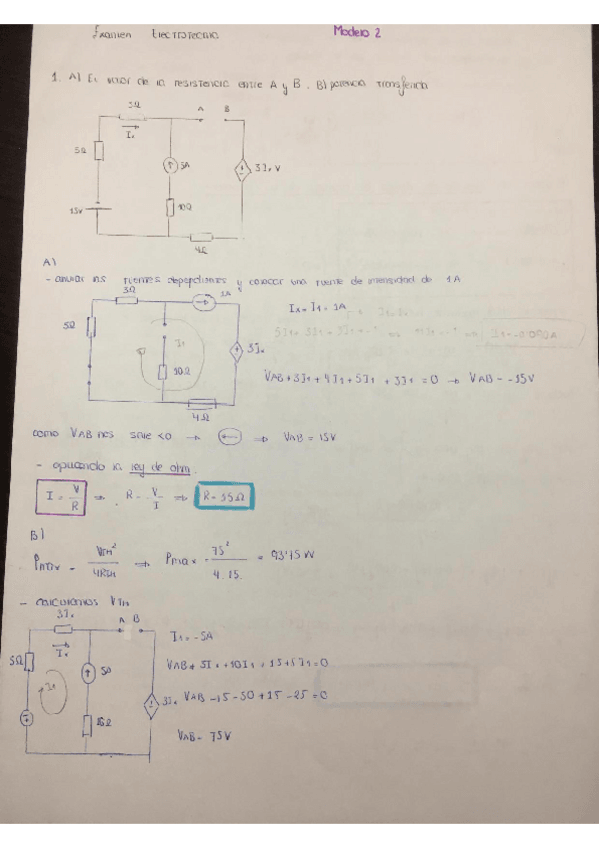 Examen Electrotecnia
Modelo 2
1. A) El valor de la resistencia entre A y B. B) potencia transferida
3Ω
A B
Ix
5Ω
5A
3Ix V
15V
10Ω
4Ω
A)
- anular las fuentes dependientes y colocar una fuente de intensidad de 1A
3Ω
1A
Ix = I1 = 1A
5Ω
I1
10Ω
VAB + 3I1 + 4I1 + 5I1 + 3I1 = 0 → VAB = -15V
4Ω
como VAB nos sale <0 → ⇒ VAB = 15V
- aplicando la ley de ohm.
I = V/R ⇒ R = V/I ⇒
B)
Pmax = VTH²/4RTH ⇒ Pmax = 75²/4·15 = 93'75W
- calculamos VTH
A B
Ix
5Ω
I1 = -5A
I1
3Ix
VAB - 15 - 50 + 15 - 25 = 0
VAB = 75V